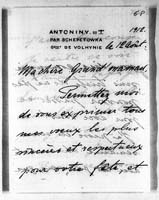 68
ANTONINY. ST
PAR SCHEPETOWKA
GVT DE VOLHYNIE
1912.
le 12 août.
Ma chère Grand'maman,
Permettez moi
de vous exprimer tous
mes vœux les plus
sincères et respectueux
pour votre fête, et